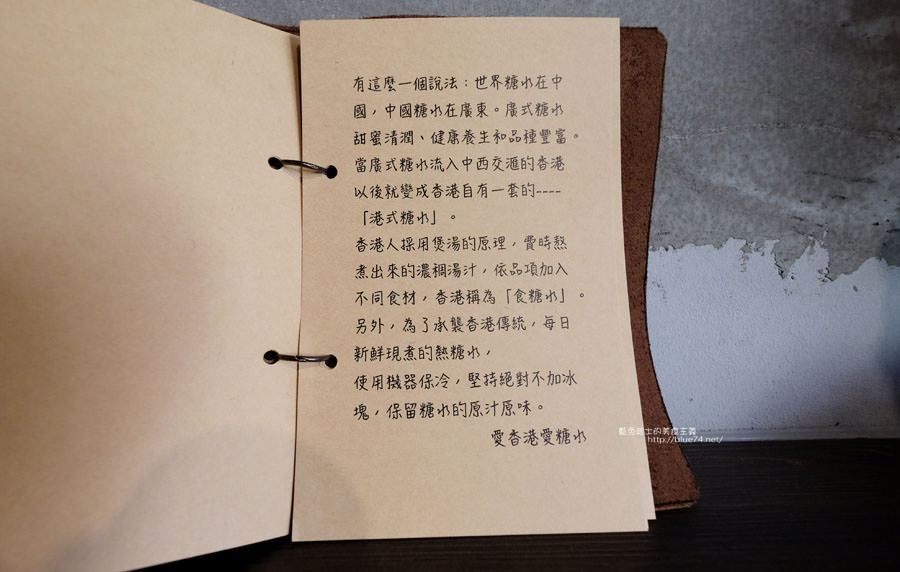 有這麼一個說法：世界糖水在中
國，中國糖水在廣東。廣式糖水
甜蜜清潤、健康養生和品種豐富。
當廣式糖水流入中西交滙的香港
以後就變成香港自有一套的----
「港式糖水」。
香港人採用煲湯的原理，費時熬
煮出來的濃稠湯汁，依品項加入
不同食材，香港稱為「食糖水」。
另外，為了承襲香港傳統，每日
新鮮現煮的熱糖水，
使用機器保冷，堅持絕對不加冰
塊，保留糖水的原汁原味。
愛香港愛糖水
藍色起士的美食主義
http://blue74.net/